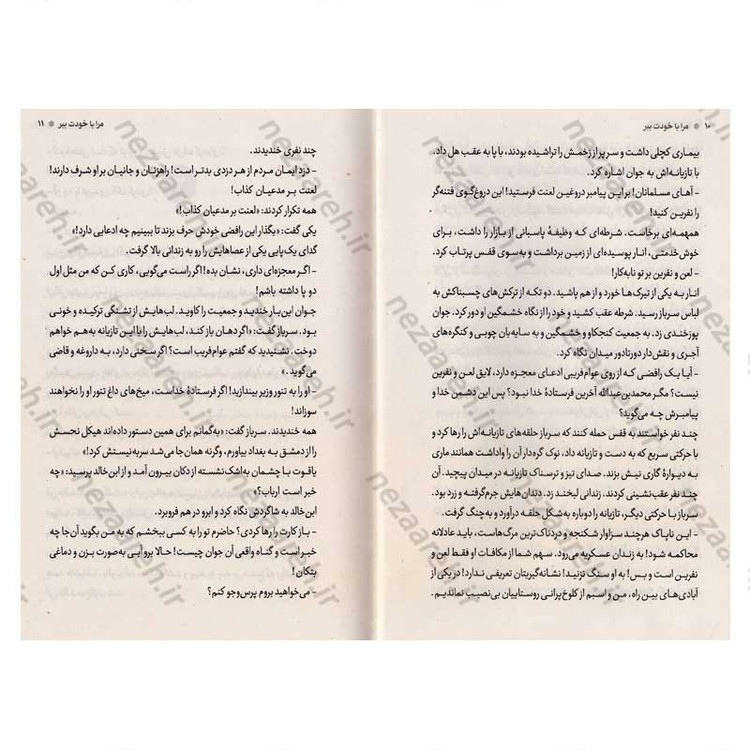 ۱۰ ● مرا با خودت ببر
بیماری کچلی داشت و سر پر از زخمش را تراشیده بودند، با پا به عقب هل داد.
با تازیانه‌اش به جوان اشاره کرد.
- آهای مسلمانان! بر این پیامبر دروغین لعنت فرستید! این دروغ‌گوی فتنه‌گر
را نفرین کنید!
همهمه‌ای برخاست. شرطه‌ای که وظیفهٔ پاسبانی از بازار را داشت، برای
خوش خدمتی، انار پوسیده‌ای از زمین برداشت و به‌سوی قفس پرتاب کرد.
- لعن و نفرین بر تو نابه‌کار!
انار به یکی از تیرک‌ها خورد و از هم پاشید. دو تکه از ترکش‌های چسبناکش به
لباس سرباز رسید. شرطه عقب کشید و خود را از نگاه خشمگین او دور کرد. جوان
پوزخندی زد. به جمعیت کنجکاو و خشمگین و به سایه‌بان چوبی و کنگره‌های
آجری و نقش‌دار دورتادور میدان نگاه کرد.
- آیا یک رافضی که از روی عوام‌فریبی ادعای معجزه دارد، لایق لعن و نفرین
نیست؟ مگر محمدبن‌عبدالله آخرین فرستادهٔ خدا نبود؟ پس این دشمن خدا و
پیامبرش چه می‌گوید؟
چند نفر خواستند به قفس حمله کنند که سرباز حلقه‌های تازیانه‌اش را رها کرد و
با حرکتی سریع که به دست و تازیانه داد، نوک گره‌دار آن را واداشت همانند ماری
به دیوارهٔ گاری نیش بزند. صدای تیز و ترسناک تازیانه در میدان پیچید. آن
چند نفر عقب‌نشینی کردند. زندانی لبخند زد. دندان‌هایش جرم‌گرفته و زرد بود.
سرباز با حرکتی دیگر، تازیانه را دوباره به‌شکل حلقه درآورد و به‌چنگ گرفت.
- این ناپاک هرچند سزاوار شکنجه و دردناک‌ترین مرگ‌هاست، باید عادلانه
محاکمه شود! به زندان عسکریه می‌رود. سهم شما از مکافات او فقط لعن و
نفرین است و بس! به او سنگ نزنید! نشانه‌گیریتان تعریفی ندارد! در یکی از
آبادی‌های بین راه، من و اسبم از کلوخ‌پرانی روستاییان بی‌نصیب نماندیم.
مرا با خودت ببر ● ۱۱
چند نفری خندیدند.
- دزد ایمان مردم از هر دزدی بدتر است! راهزنان و جانیان بر او شرف دارند!
لعنت بر مدعیان کذاب!
همه تکرار کردند: «لعنت بر مدعیان کذاب!»
یکی گفت: «بگذار این رافضی خودش حرف بزند تا ببینیم چه ادعایی دارد!»
گدای یک‌پایی یکی از عصاهایش را رو به زندانی بالا گرفت.
- اگر معجزه‌ای داری، نشان بده! اگر راست می‌گویی، کاری کن که من مثل اول
دو پا داشته باشم!
جوان این‌بار خندید و جمعیت را کاوید. لب‌هایش از تشنگی ترکیده و خونی
بود. سرباز گفت: «اگر دهان باز کند، لب‌هایش را با این تازیانه به‌هم خواهم
دوخت. نشنیدید که گفتم عوام‌فریب است؟ اگر سخنی دارد، به داروغه و قاضی
می‌گوید.»
- او را به تنور وزیر بیندازید! اگر فرستادهٔ خداست، میخ‌های داغ تنور او را نخواهند
سوزاند!
همه خندیدند. سرباز گفت: «به‌گمانم برای همین دستور داده‌اند هیکل نحسش
را از دمشق به بغداد بیاورم، وگرنه همان جا می‌شد سربه‌نیستش کرد!»
یاقوت با چشمان به‌اشک‌نشسته از دکان بیرون آمد و از ابن خالد پرسید: «چه
خبر است ارباب؟»
ابن‌خالد به شاگردش نگاه کرد و ابرو در هم فرو برد.
- باز کارت را رها کردی؟ حاضرم تو را به کسی ببخشم که به من بگوید آن‌جا چه
خبر است و گناه واقعی آن جوان چیست! حالا برو آبی به‌صورت بزن و دماغی
بتکان!
- می‌خواهید بروم پرس‌وجو کنم؟
nezaareh.ir
nezaareh.ir
nezaareh.ir
nezaareh.ir
nezaareh.ir
nezaareh.ir